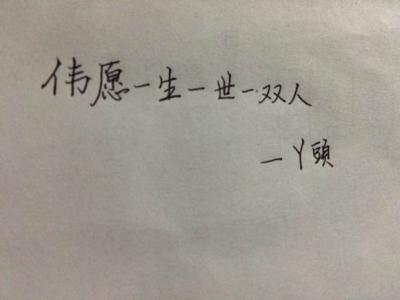 伟愿一生一世一双人
一丫頭